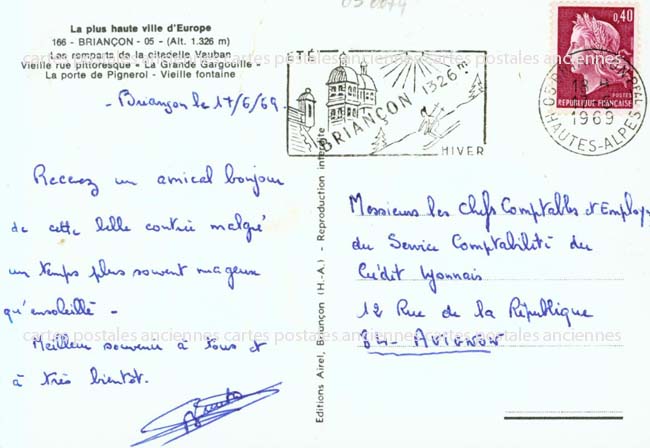 La plus haute ville d'Europe
166 - BRIANÇON - 05 - (Alt. 1.326 m)
Les remparts de la citadelle Vauban
Vieille rue pittoresque - "La Grande Gargouille" -
La porte de Pignerol - Vieille fontaine
- Briançon le 17/6/69
Recevez un amical bonjour
de cette belle contrée malgré
un temps plus souvent nuageux
qu'ensoleillé -
Meilleur souvenir à tous et
à très bientôt.
Editions Airel, Briançon (H.-A.) - Reproduction interdite
ÉTÉ
BRIANÇON 1326m
HIVER
0,40
POSTES
REPUBLIQUE FRANÇAISE
1969
HAUTES-ALPES
Messieurs les Chefs Comptables et Employ
du Service Comptabilité du
Crédit Lyonnais
12 Rue de la République
84 - AVIGNON
cartes postales anciennes cartes postales anciennes cartes postales anciennes
cartes postales anciennes cartes postales anciennes cartes postales anciennes